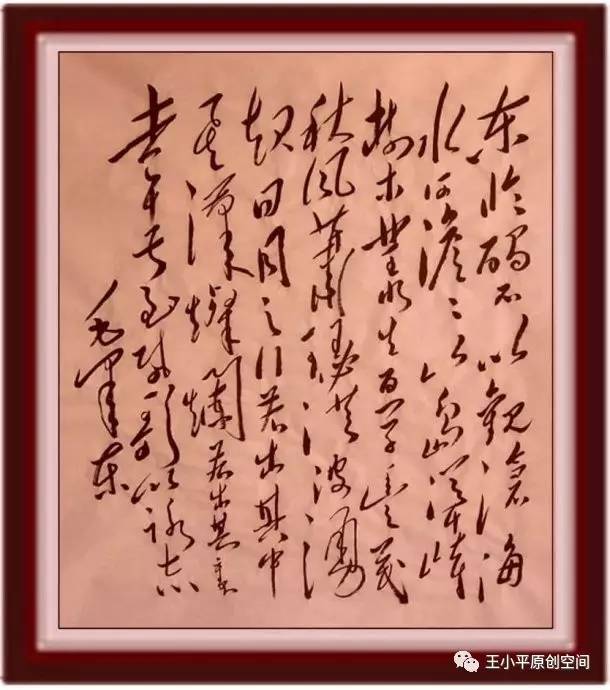 东临碣石以觀滄海
水何澹々山岛竦峙
樹木叢生百草豐茂
秋風蕭瑟洪波湧
起日月之行若出其中
星漢燦爛若出其里
幸甚至哉歌以咏志
毛澤东
王小平原创空间